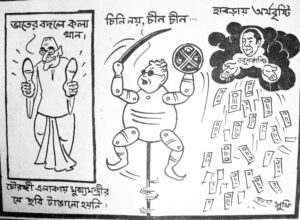 ভাতের বদলে কলা
খান।
চৌরঙ্গী এলাকায় মুখ্যমন্ত্রীর
যে ছবি টাঙানো হয়নি।
চিনি নয়, চীন চীন...
হাবড়ায় অর্থবৃষ্টি